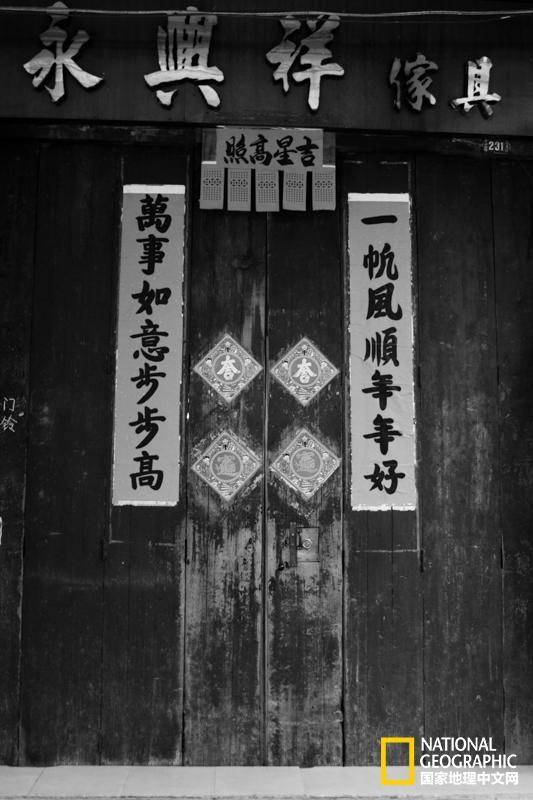 永興祥傢具
吉星高照
231
一帆風順年年好
萬事如意步步高
春
春
门铃
NATIONAL
GEOGRAPHIC
国家地理中文网